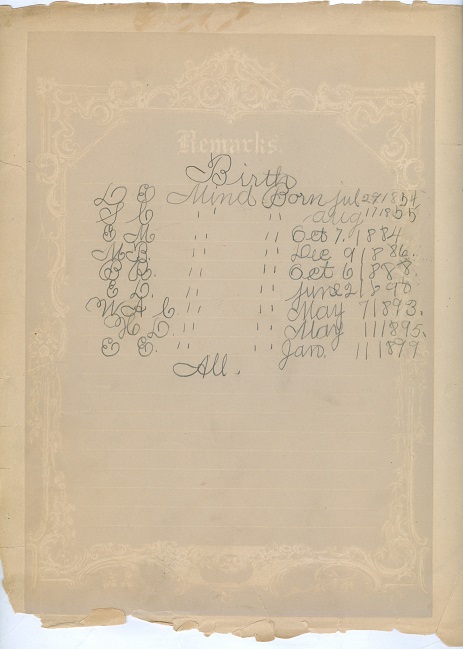 Remarks
Birth
L E Mind Born jul 27 1854
S C " " aug 17 1855
E M " " Oct 7. 1884
M M. " " Dec 9 1886.
B B. " " Oct 6 1888
E L " " June 2 1890
W A C " " May 7 1893.
H L. " " May 11 1895.
E E. " " Jan. 11 1899
All.